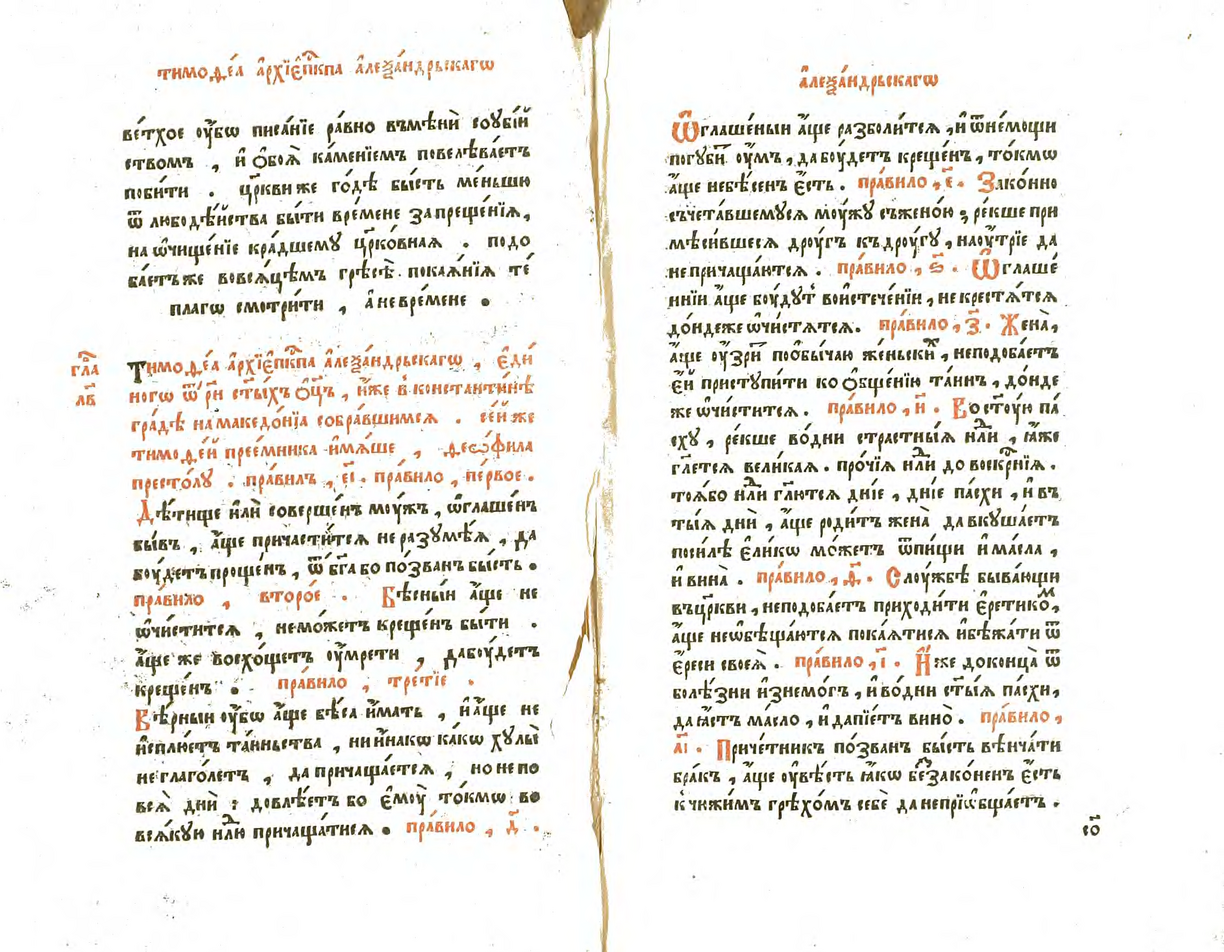 тимоѳе́а а҆рхїепⷭ҇кпа а҆леѯа́ндрьскагѡ
ве́тхое ѹ҆́бѡ писа́нїе ра́вно въмѣнѝ соꙋбі́й
ствомъ , и҆ ѻ҆боѧ̀ ка́менїемъ повелѣва́етъ
поби́ти . цр҃кви же го́дѣ бы́сть ме́ньшю
ѿ любодѣ́йства бы́ти вре́мене запреще́нїѧ,
на ѡ҆чище́нїе кра́дшемꙋ цр҃ко́внаѧ . подо
ба́етъ же вовсѧ́цѣмъ грѣсѣ̀ покаѧ́нїѧ те́
плагѡ смотри́ти , а҆ не вре́мене .
гла҃
лв҃
Тимоѳе́а а҆рхїепⷭ҇кпа а҆леѯа́ндрьскагѡ , є҆ди́
ногѡ ѿ р҃н ст҃ы́хъ ѻ҆ц҃ъ , и҆́же в константи́нѣ
гра́дѣ на македо́нїа собра́вшимсѧ . се́й же
тимоѳе́й прее́мника и҆мѧ́ше , ѳеѡ́фила
престо́лꙋ . пра́вилъ , є҃і . пра́вило , пе́рвое .
Дѣ́тище и҆лѝ соверше́нъ мꙋ́жъ , ѡ҆глаше́нъ
бы́въ , а҆́ще причасти́тсѧ не разꙋмѣ́ѧ , да
бꙋ́детъ проще́нъ , ѿ бг҃а бо по́званъ бы́сть .
пра́вило , второ́е . Бѣ́сныи а҆́ще не
ѡ҆чи́ститсѧ , не мо́жетъ креще́нъ бы́ти .
а҆́ще же восхо́щетъ ѹ҆мре́ти , да бꙋ́детъ
креще́нъ . пра́вило , тре́тїе .
Вѣ́рныи ѹ҆́бѡ а҆́ще бѣ́са и҆́мать , и҆ а҆́ще не
и҆сплю́етъ та́инъства , ни и҆на́кѡ ка́кѡ хꙋ́лы̀
не глаго́летъ , да причаща́етсѧ , но не по
всѧ̀ дни̑ : довлѣ́етъ бо є҆мꙋ̀ то́кмѡ во
всѧ́кꙋю нл҃ю причаща́тисѧ . пра́вило , д҃ .
а҆леѯа́ндрьскагѡ
Ѡ҆глаше́ныи а҆́ще разболи́тсѧ , и҆ ѿ не́мощи
погꙋби́т ѹ҆́мъ , да бꙋ́детъ креще́нъ , то́кмѡ
а҆́ще не бѣ́сенъ є҆́сть . пра́вило , є҃ . Зако́нно
съчета́вшемꙋсѧ мꙋ́жꙋ съ жено́ю ; ре́кше при
мѣси́вшесѧ дрꙋ́гъ къ дрꙋ́гꙋ , на ѹ҆́трїе да
не причаща́ютсѧ . пра́вило , ѕ҃ . Ѡ҆глаше́
ннїи а҆́ще бꙋ́дꙋт во и҆стече́нїи , не крестѧ́тсѧ
до́ндеже ѡ҆чи́стѧтсѧ . пра́вило , з҃ . Жена̀,
а҆́ще ѹ҆́зри́т по ѡ҆бы́чаю же́ньски , не подоба́етъ
є҆́й пристꙋпи́ти ко ѻ҆бще́нїю та́инъ , до́нде
же ѡ҆чи́ститсѧ . пра́вило , и҃ . Во ст҃ꙋ́ю па́
схꙋ , ре́кше во́ дни стра́стныѧ нл҃и , ꙗ҆́же
гл҃етсѧ вели́каѧ . про́чїѧ нл҃и до воскрⷭ҇нїѧ .
тоѧ́бо нл҃и гл҃ютсѧ дні́е , дні́е па́схи , и҆ въ
ты́ѧ дни̑ , а҆́ще роди́тъ жена̀ да вкꙋша́етъ
по си́лѣ є҆ли́кѡ мо́жетъ ѿ пи́щи и҆ ма́сла ,
и҆ вина̀ . пра́вило , ѳ҃ . Слꙋ́жбѣ быва́ющи
въ цр҃кви , не подоба́етъ приходи́ти є҆ретико́м ,
а҆́ще не ѡ҆бѣща́ютсѧ покаѧ́тисѧ и҆ бѣжа́ти ѿ
є҆́реси своеѧ̀ . пра́вило , і҃ . И҆́же до конца̀ ѿ
болѣ́зни и҆знемо́гъ , и҆ во́ дни ст҃ы́ѧ па́схи,
да ꙗ҆́стъ ма́сло , и҆ да пїе́тъ вино̀ . пра́вило ,
а҃і . Приче́тникъ по́званъ бы́сть вѣнча́ти
бра́къ , а҆́ще ѹ҆вѣ́сть ꙗ҆́кѡ беззако́ненъ є҆́сть
к чюжи́мъ грѣхо́мъ себѐ да не прїѡбща́етъ .
со҃